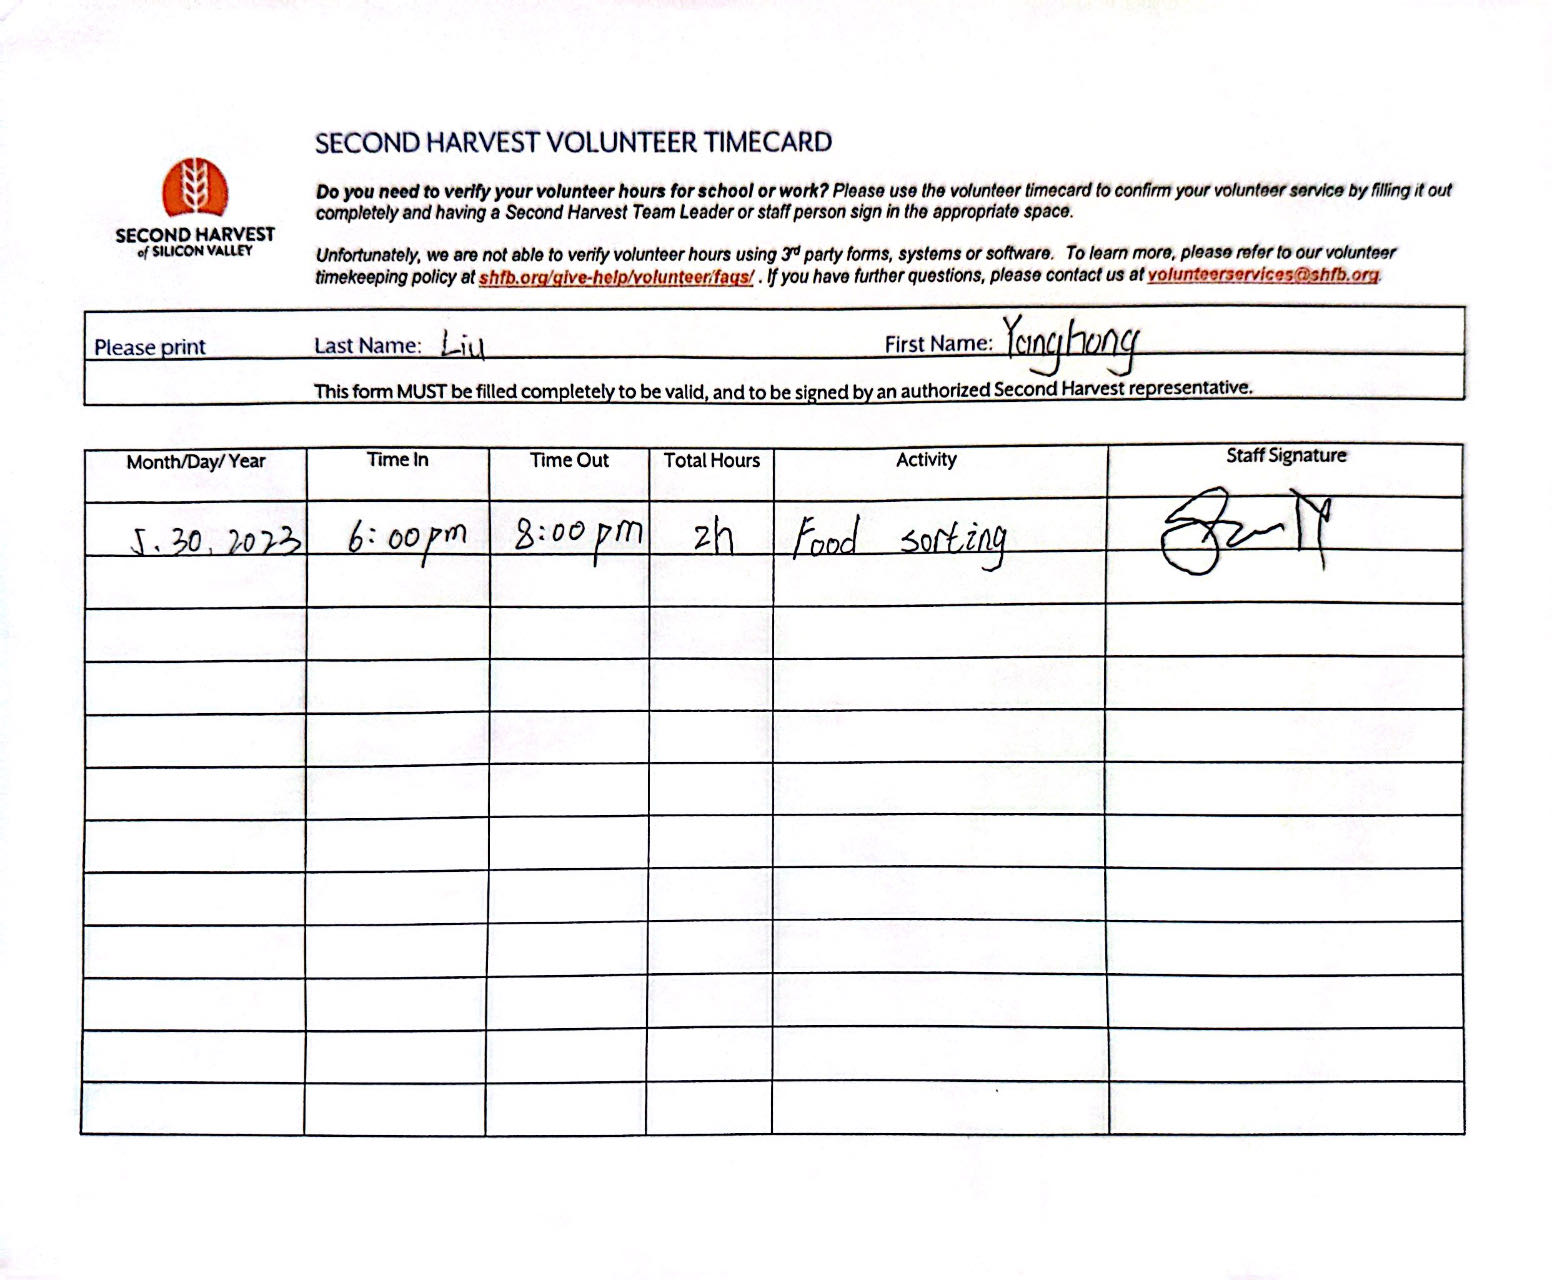 SECOND HARVEST VOLUNTEER TIMECARD
Do you need to verify your volunteer hours for school or work? Please use the volunteer timecard to confirm your volunteer service by filling it out
completely and having a Second Harvest Team Leader or staff person sign in the appropriate space.
SECOND HARVEST
of SILICON VALLEY
Unfortunately, we are not able to verify volunteer hours using 3rd party forms, systems or software. To learn more, please refer to our volunteer
timekeeping policy at shfb.org/give-help/volunteer/faqs/ . If you have further questions, please contact us at volunteerservices@shfb.org.
Please print Last Name: Liu First Name: Yanghong
This form MUST be filled completely to be valid, and to be signed by an authorized Second Harvest representative.
Month/Day/ Year Time In Time Out Total Hours Activity Staff Signature
5.30.2023 6:00pm 8:00pm 2h Food sorting